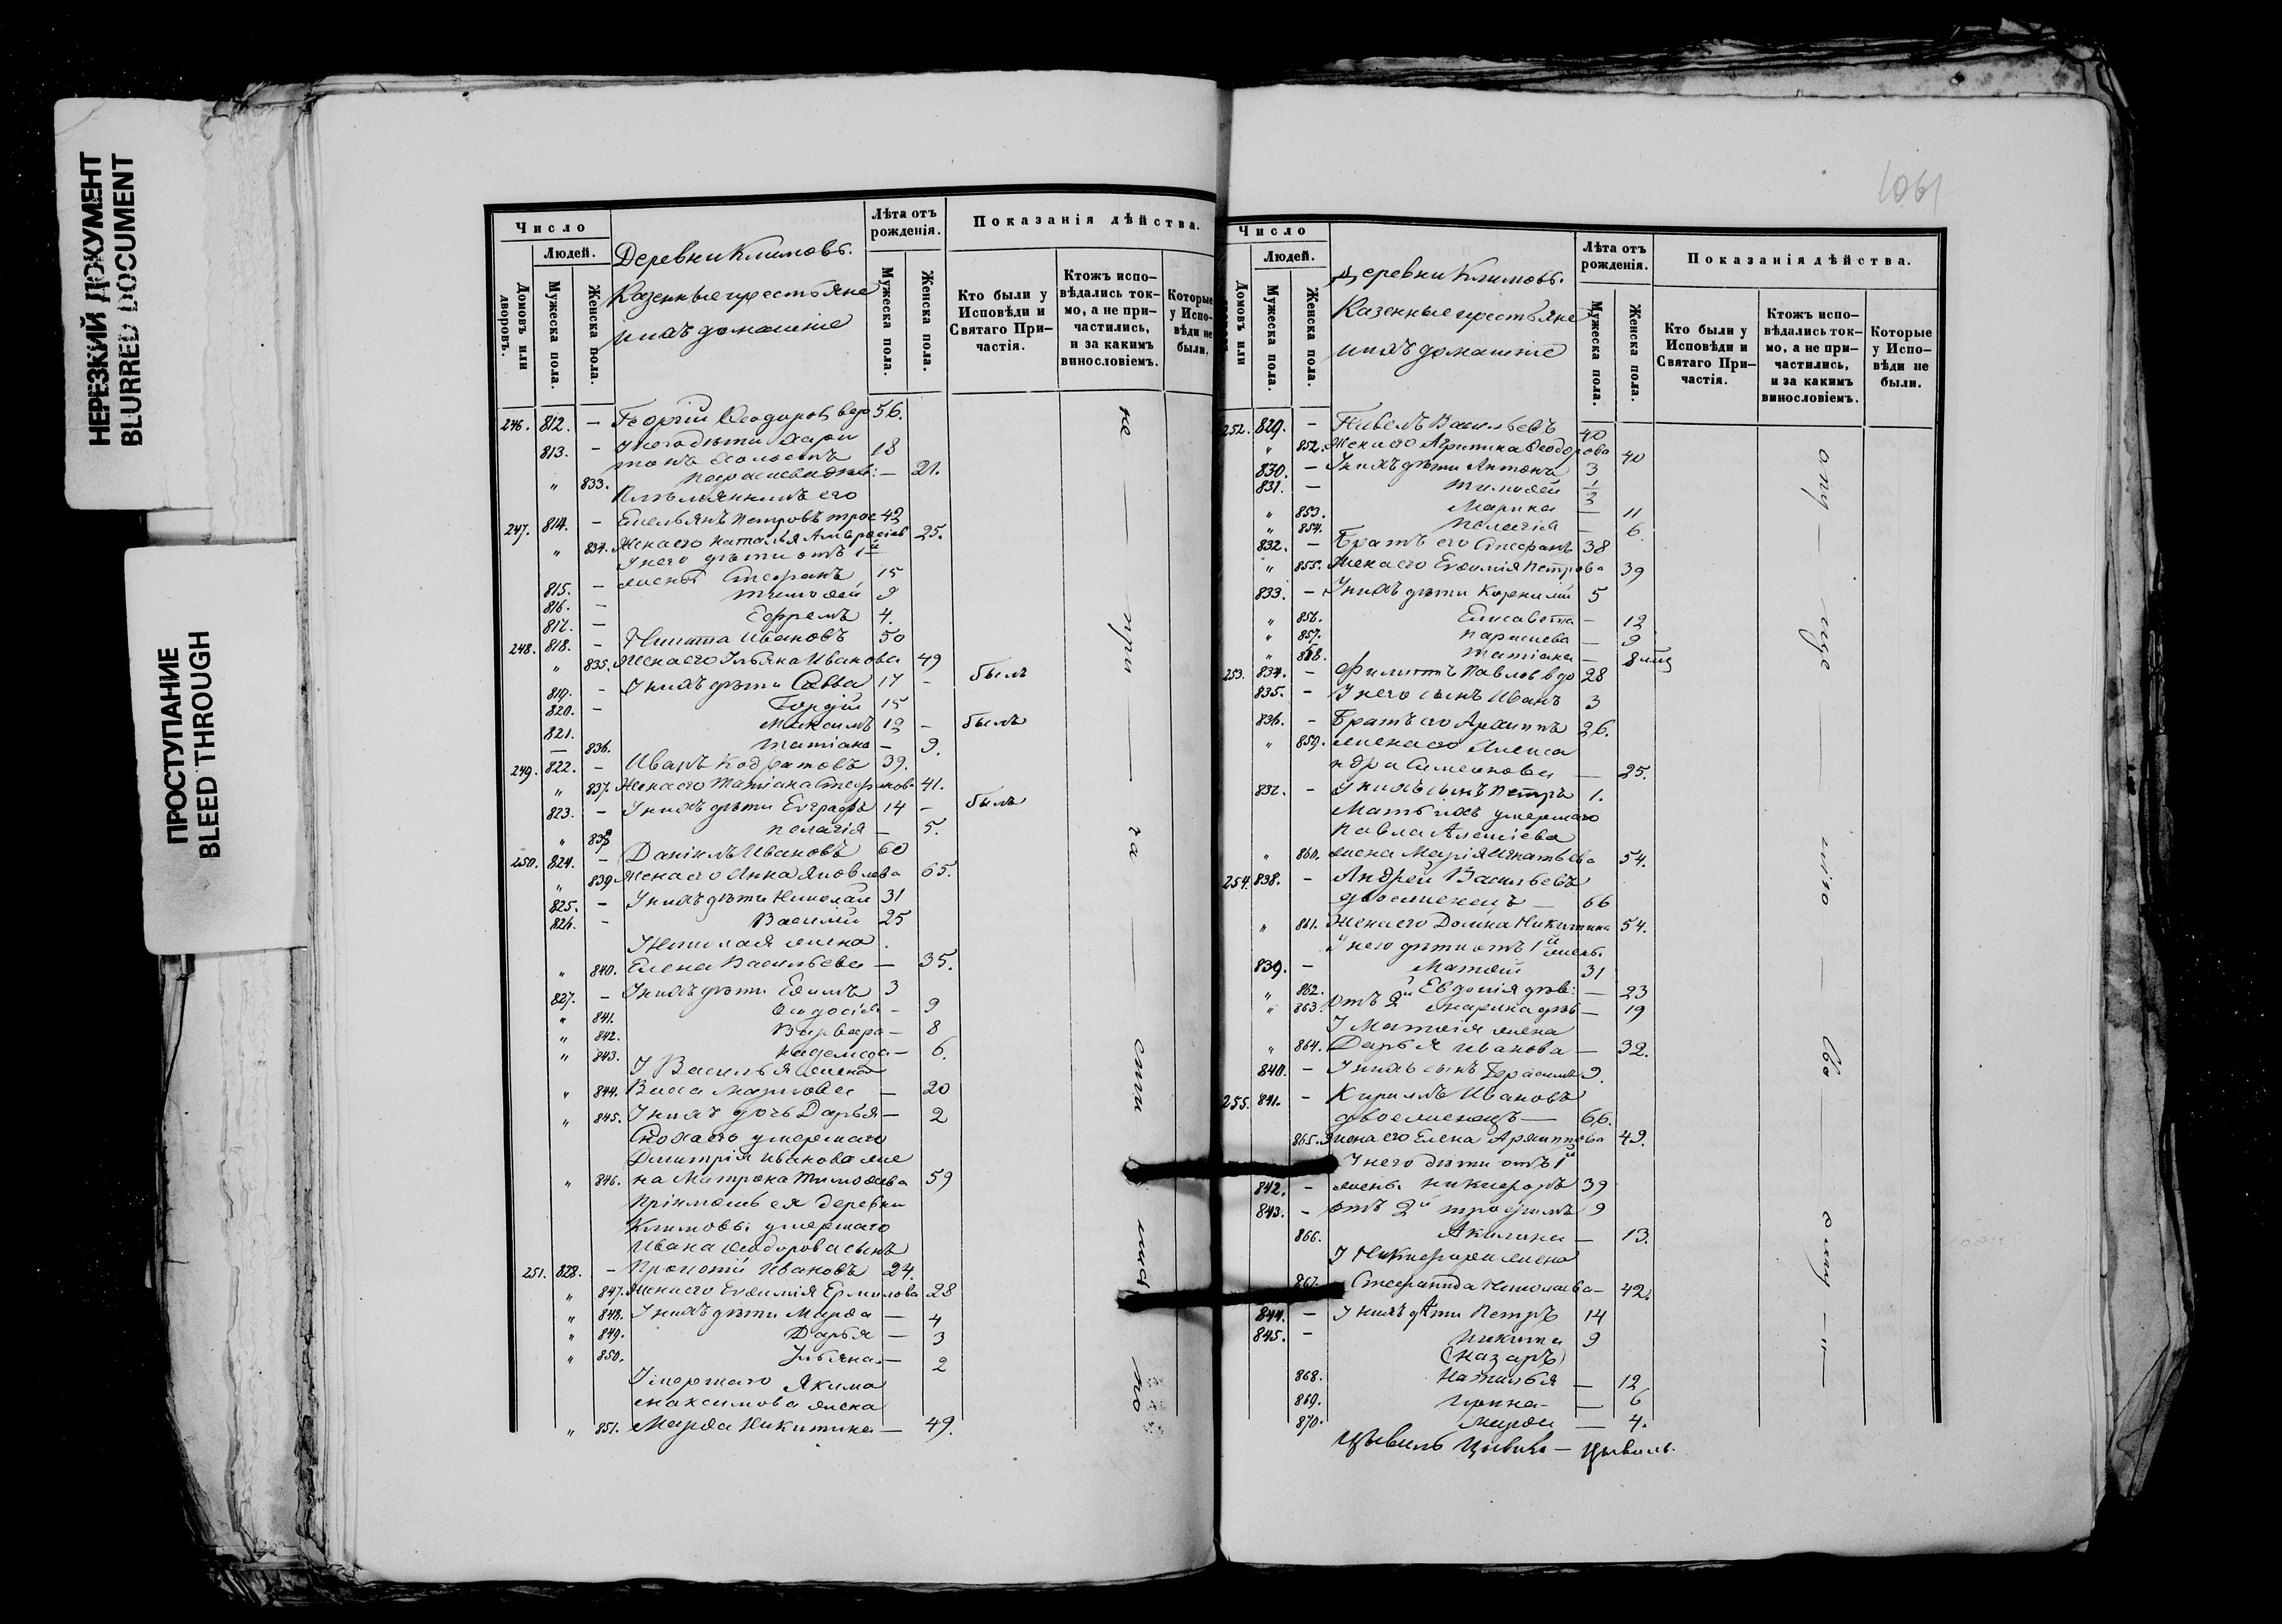 НЕРЕЗКИЙ ДОКУМЕНТ
BLURRED DOCUMENT
ПРОСТУПАНИЕ
BLEED THROUGH
Число
Людей.
Домовъ или дворовъ.
Мужеска пола.
Женска пола.
Деревни Климовъ.
Казенные крестьяне
и ихъ домашніе
Лѣта отъ рожденія.
Мужеска пола.
Женска пола.
Показанія дѣйства.
Кто были у Исповѣди и Святаго Причастія.
Ктожъ исповѣдались токмо, а не причастились, и за какимъ винословіемъ.
Которые у Исповѣди не были.
246. 812. – Георгій Ѳеодоровъ вдо 56.
813. – У него дѣти Хари
тонъ холостъ 18
„ 833. Параскева дѣв: – 21.
Племянникъ его
247. 814. – Емельянъ Петровъ трое 42
„ 834. Жена его Наталья Амвросіев 25.
У него дѣти отъ 1й
815. – жены Стефанъ 15
816. – Тимоѳей 9
817. – Ефремъ 4.
248. 818. – Никита Ивановъ 50
„ 835. Жена его Ульяна Иванова 49
819. – У нихъ дѣти Савва 17 – былъ
820. – Гордій 15
821. Максимъ 12 – былъ
— 836. Татіана – 9.
249. 822. – Иванъ Кодратовъ 39.
„ 837. Жена его Татіана Стефанов 41.
823. – У нихъ дѣти Евграфъ 14 – былъ
„ 838 Пелагія – 5.
250. 824. – Даніилъ Ивановъ 60
„ 839 Жена его Анна Яковлева 65.
825. – У нихъ дѣти Николай 31
826. – Василій 25
У Николая жена
„ 840. Елена Васильева – 35.
827. – У нихъ дѣти Ефимъ 3
„ 841. Ѳеодосія – 9
„ 842. Варвара – 8
„ 843. Надежда – 6.
У Василья жена
„ 844. Васса Маркова – 20
„ 845. У нихъ дочь Дарья – 2
Сноха его умершаго
Димитрія Иванова же
„ 846. на Матрона Тимоѳева 59
Пріимышъ ея деревни
Климовы умершаго
Ивана Ѳеодорова сынъ
251. 828. – Прокопій Ивановъ 24.
„ 847. Жена его Евѳимія Ермилова 28
„ 848. У нихъ дѣти Марѳа – 4
„ 849. Дарья – 3
„ 850. Ульяна – 2
Умершаго Якима
Максимова жена
„ 851. Марѳа Никитина – 49.
не — при — ча — стил
Число
Людей.
Домовъ или
Мужеска пола.
Женска пола.
Деревни Климовъ.
Казенные крестьяне
и ихъ домашніе
Лѣта отъ рожденія.
Мужеска пола.
Женска пола.
Показанія дѣйства.
Кто были у Исповѣди и Святаго Причастія.
Ктожъ исповѣдались токмо, а не причастились, и за какимъ винословіемъ.
Которые у Исповѣди не были.
252. 829. – Павелъ Васильевъ 40
„ 852. Жена его Агрипина Ѳеодорова 40
830. – У нихъ дѣти Антонъ 3
831. – Тимоѳей 1/2
„ 853. Марина – 11
„ 854. Пелагія – 6.
832. – Братъ его Стефанъ 38
„ 855. Жена его Евѳимія Петрова 39
833. – У нихъ дѣти Корнилій 5
„ 856. Елисавета – 12
„ 857. Параскева – 9
„ 858. Татіана – 8 мц
253. 834. – Филиппъ Павловъ вдо 28
835. – У него сынъ Иванъ 3
836. – Братъ его Архиппъ 26.
„ 859. жена его Алекса
ндра Симеонова – 25.
837. – У нихъ сынъ Петръ 1.
Мать ихъ умершаго
Павла Алексіева
„ 860. жена Марія Игнатьева 54.
254. 838. – Андрей Васильевъ
двоеженецъ – 66
„ 861. Жена его Домна Никитина 54.
У него дѣти отъ 1й жены
839. – Матѳей 31
„ 862. Евдокія дѣв: – 23
„ 863. Отъ 2й Марина дѣв – 19
У Матѳея жена
„ 864. Дарья Иванова – 32.
840. – У нихъ сынъ Герасимъ 9.
255. 841. – Кириллъ Ивановъ
двоеженецъ — 66.
865. Жена его Елена Архиппова 49.
У него дѣти отъ 1й
842. – жены Никифоръ 39
843. – отъ 2й Трофимъ 9
866. Акилина – 13.
У Никифора жена
867. Стефанида Николаева – 42.
844. – У нихъ дѣти Петръ 14
845. – Никита 9
(Назаръ)
868. Наталья – 12
869. – 6
870. Марѳа – 4.
опу — ще — нію —